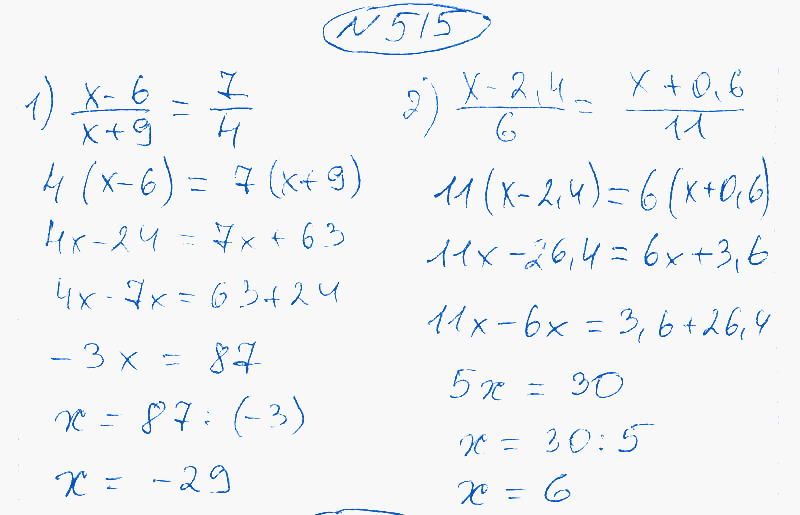 N 515
1) (x-6)/(x+9) = 7/4
4(x-6) = 7(x+9)
4x-24 = 7x+63
4x-7x = 63+24
-3x = 87
x = 87 : (-3)
x = -29
2) (x-2,4)/6 = (x+0,6)/11
11(x-2,4) = 6(x+0,6)
11x-26,4 = 6x+3,6
11x-6x = 3,6+26,4
5x = 30
x = 30:5
x = 6